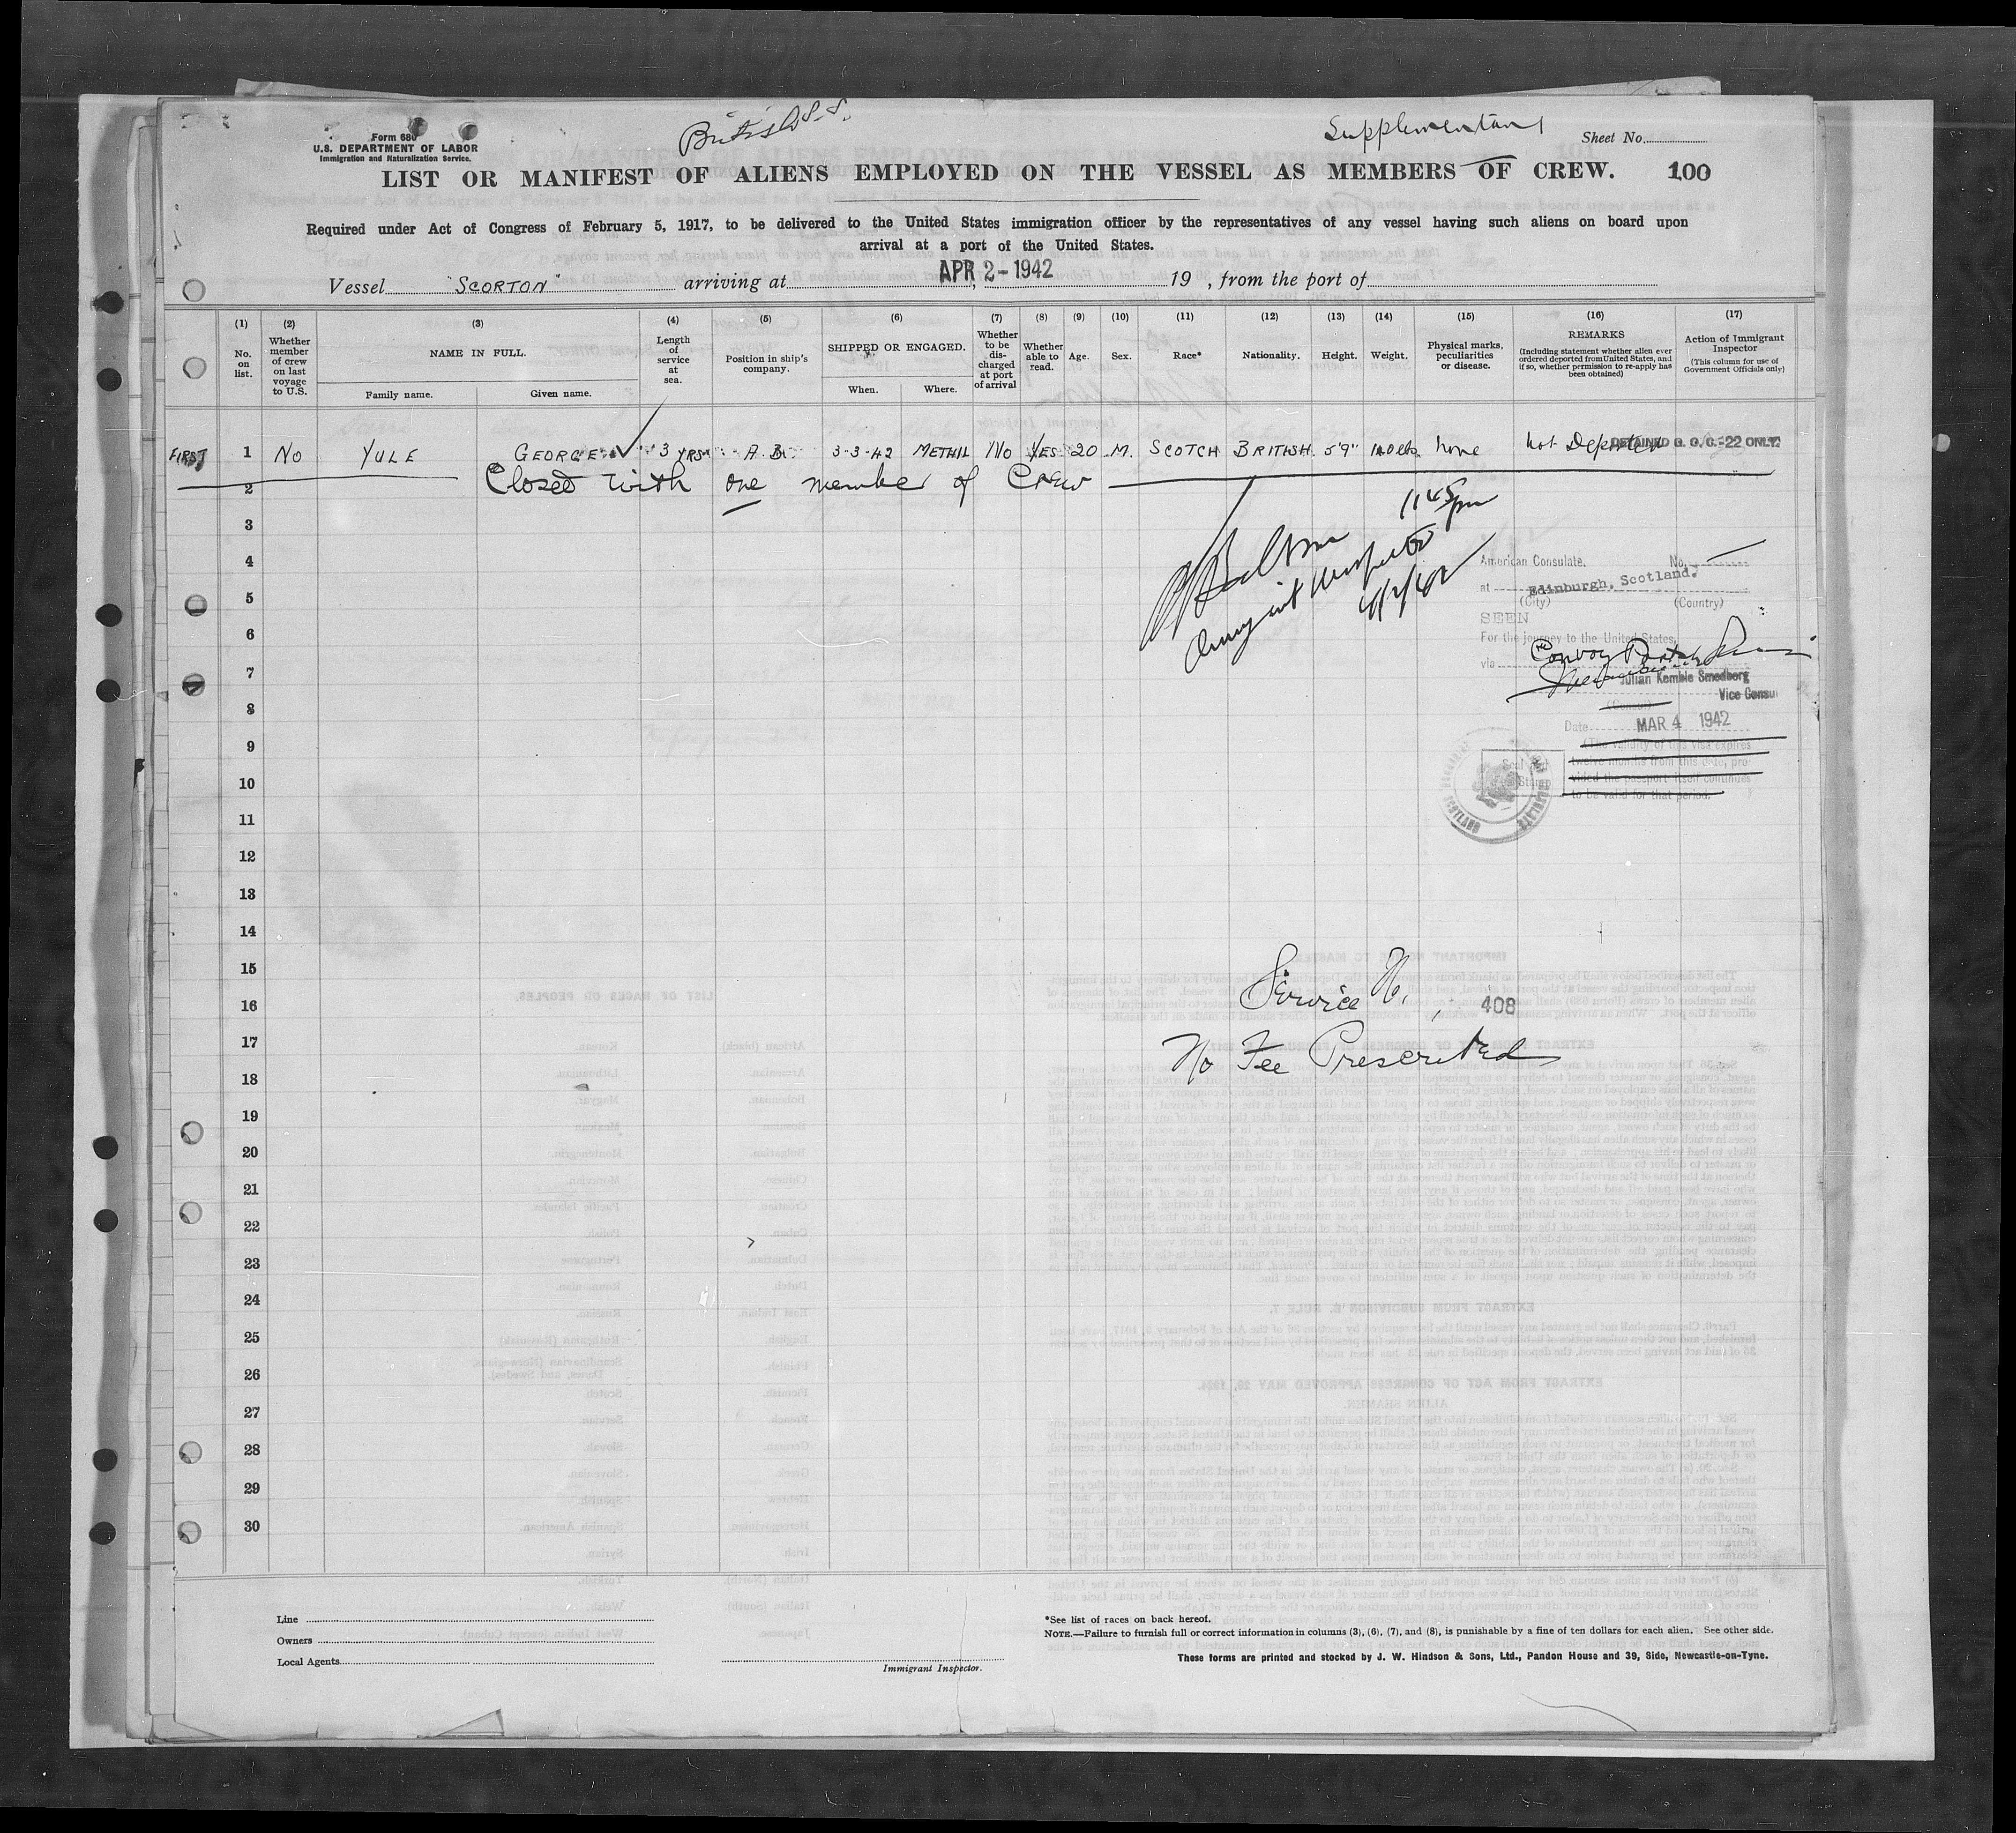 British S.S.
Supplementary
Sheet No.
Form 680
U.S. DEPARTMENT OF LABOR
Immigration and Naturalization Service.
LIST OR MANIFEST OF ALIENS EMPLOYED ON THE VESSEL AS MEMBERS OF CREW. 100
Required under Act of Congress of February 5, 1917, to be delivered to the United States immigration officer by the representatives of any vessel having such aliens on board upon
arrival at a port of the United States.
Vessel "SCORTON" arriving at APR 2-1942, 19 , from the port of
(1) (2) (3) (4) (5) (6) (7) (8) (9) (10) (11) (12) (13) (14) (15) (16) (17)
No. on list.
Whether member of crew on last voyage to U.S.
NAME IN FULL.
Family name. Given name.
Length of service at sea.
Position in ship's company.
SHIPPED OR ENGAGED.
When. Where.
Whether to be discharged at port of arrival
Whether able to read.
Age. Sex. Race* Nationality. Height. Weight.
Physical marks, peculiarities or disease.
REMARKS
(Including statement whether alien ever ordered deported from United States, and if so, whether permission to re-apply has been obtained)
Action of Immigrant Inspector
(This column for use of Government Officials only)
FIRST 1 No YULE GEORGE 3 YRS A.B. 3-3-42 METHIL No YES 20 M. SCOTCH BRITISH 5'9" None Not Deported
2 Closed with one member of Crew
3
4
5
6
7
8
9
10
11
12
13
14
15
16
17
18
19
20
21
22
23
24
25
26
27
28
29
30
1145 pm
4/2/42
American Consulate, No.
at Edinburgh, Scotland.
(City) (Country)
SEEN
For the journey to the United States
via Convoy
Julian Kemble Smedberg
Vice Consul
Date MAR 4 1942
(The validity of this visa expires
twelve months from this date, pro-
vided the passport itself continues
to be valid for that period.)
Service No. 408
No Fee Prescribed
Line
Owners
Local Agents
Immigrant Inspector.
*See list of races on back hereof.
NOTE.—Failure to furnish full or correct information in columns (3), (6), (7), and (8), is punishable by a fine of ten dollars for each alien. See other side.
These forms are printed and stocked by J. W. Hindson & Sons, Ltd., Pandon House and 39, Side, Newcastle-on-Tyne.